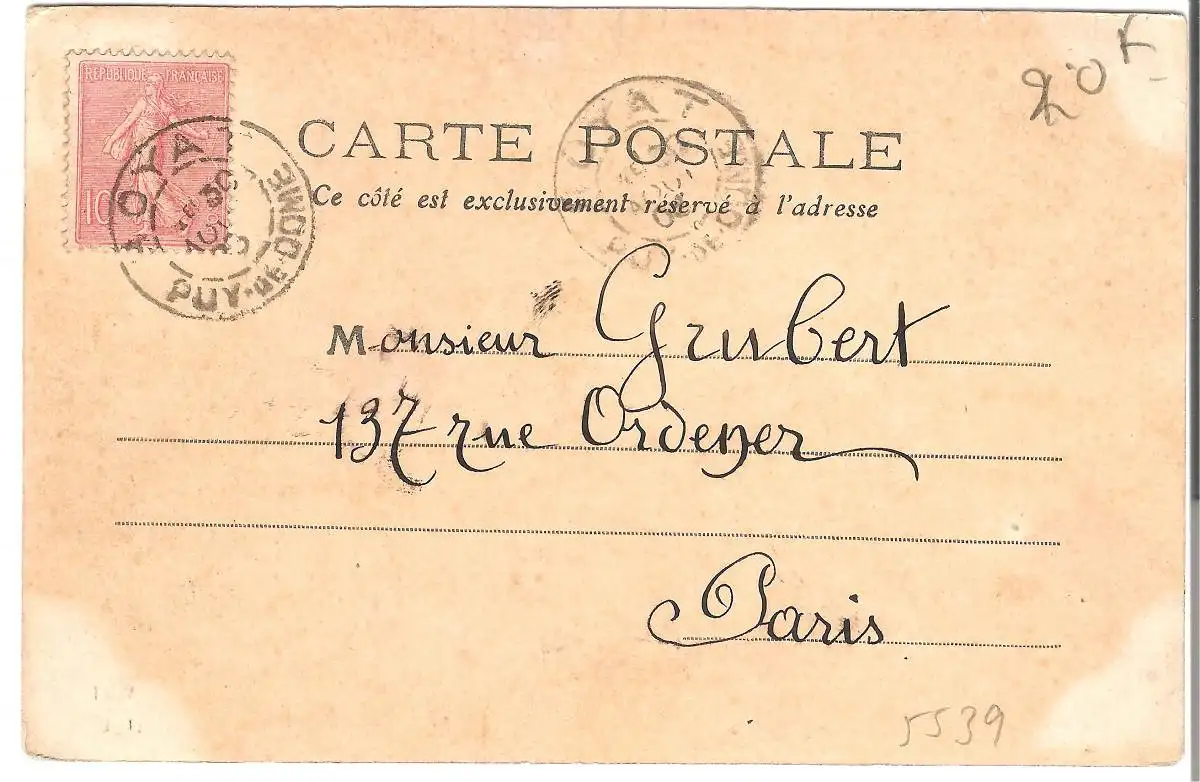 REPUBLIQUE FRANÇAISE
10
ROYAT
PUY-DE-DOME
ROYAT
CARTE POSTALE
Ce côté est exclusivement réservé à l'adresse
Monsieur Grubert
137 rue Ordener
Paris
5539